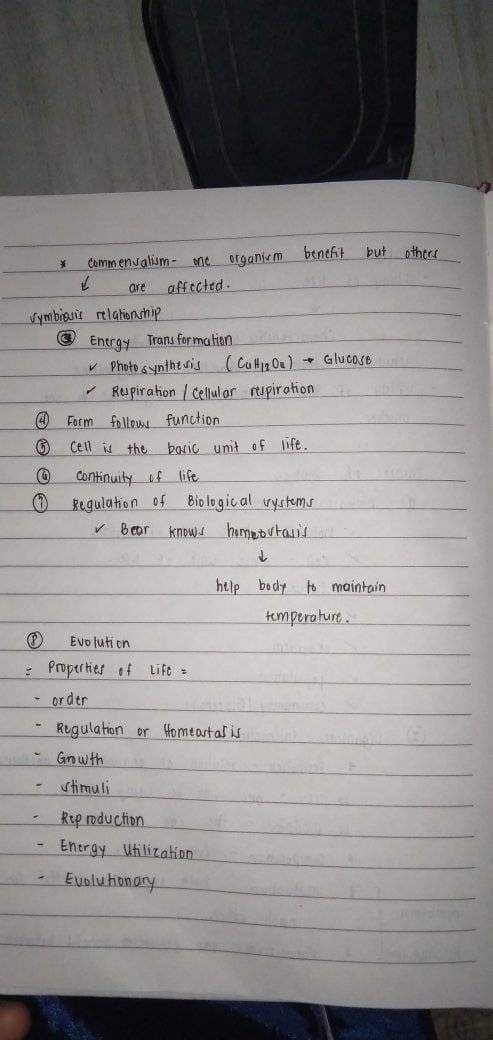 * commensalism - one organism benefit but others
↙ are affected.
symbiosis relationship
③ Energy Transformation
✓ Photosynthesis (C6H12O6) → Glucose
✓ Respiration / Cellular respiration
④ Form follows function
⑤ Cell is the basic unit of life.
⑥ Continuity of life
⑦ Regulation of Biological systems
✓ Bear knows homeostasis
↓
help body to maintain
temperature.
⑧ Evolution
= Properties of Life =
- order
- Regulation or Homeostasis
- Growth
- stimuli
- Reproduction
- Energy Utilization
- Evolutionary